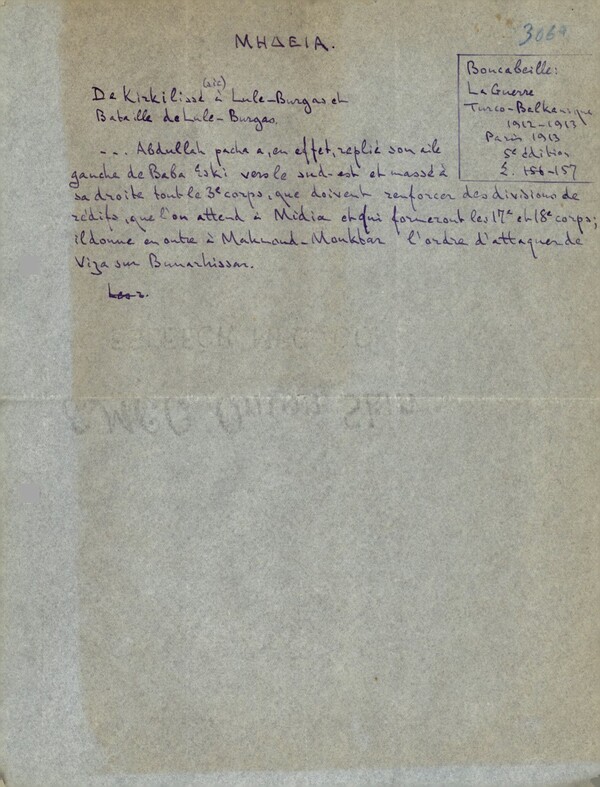 3069
ΜΗΔΕΙΑ.
Boucabeille:
La Guerre
Turco-Balkanique
1912-1913
Paris 1913
5e édition
Σ. 156-157
(sic)
De Kirkilissé à Lule-Burgas et
Bataille de Lule-Burgas.
... Abdullah pacha a, en effet, replié son aile
gauche de Baba Eski vers le sud-est et massé à
sa droite tout le 3e corps, que doivent renforcer des divisions de
rédifs, que l'on attend à Midia et qui formeront les 17e et 18e corps;
il donne en outre à Mahmoud-Mouktar l'ordre d'attaquer de
Viza sur Bunarhissar.